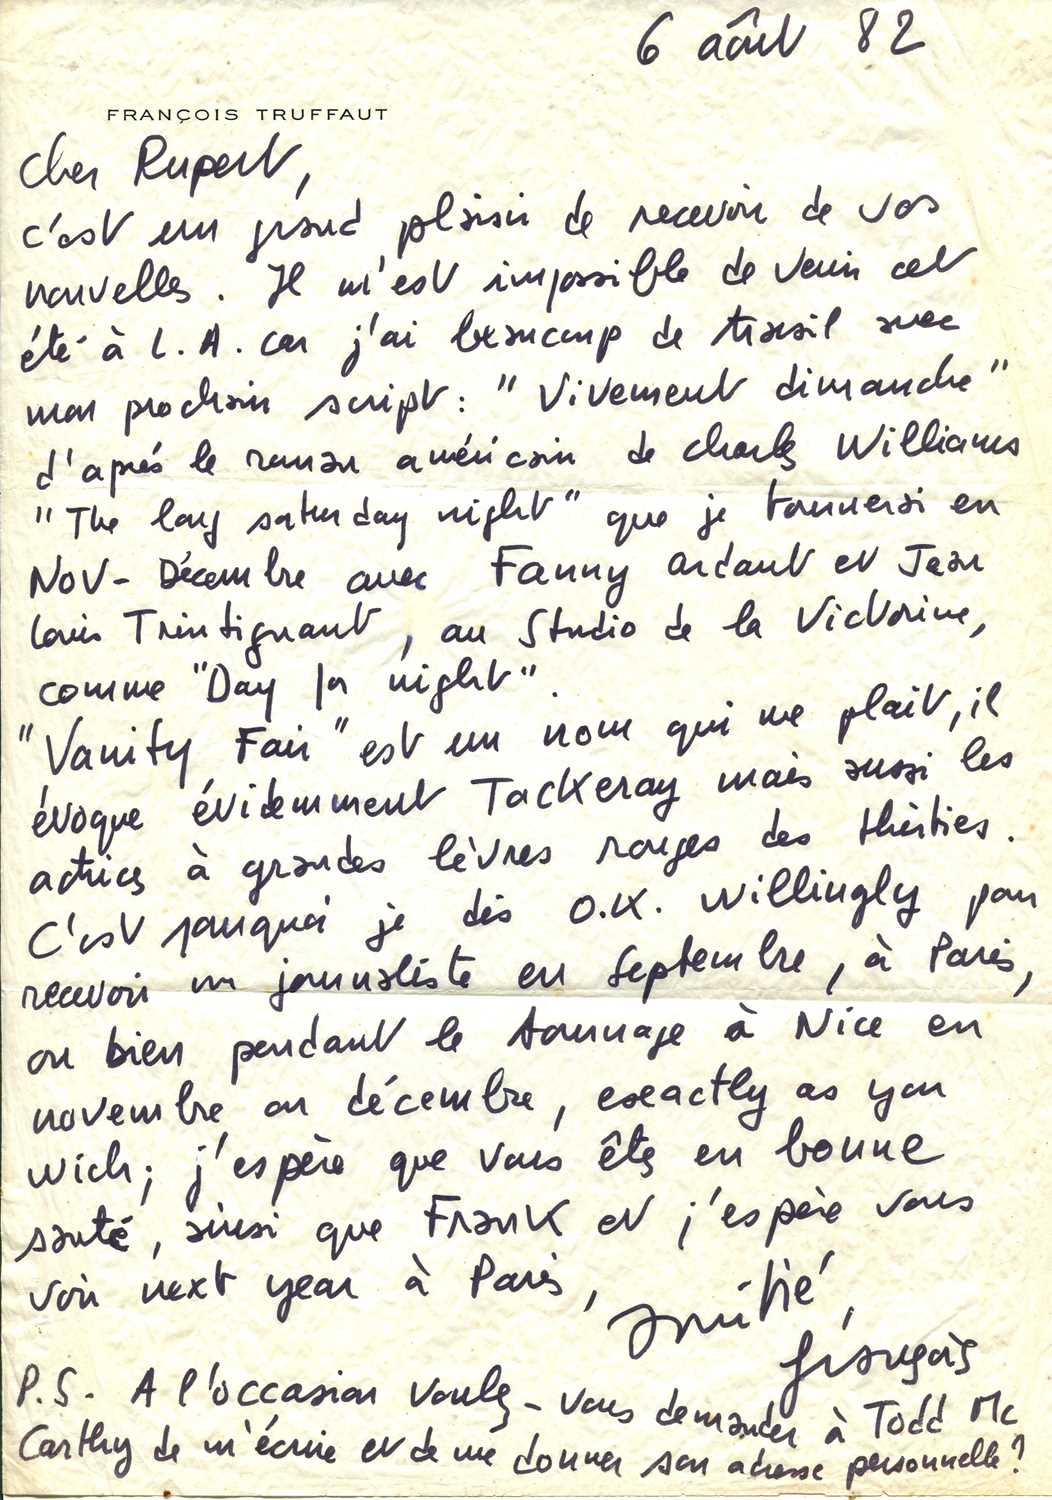 6 août 82
FRANÇOIS TRUFFAUT
Cher Rupert,
c'est un grand plaisir de recevoir de vos
nouvelles. Il m'est impossible de venir cet
été à L.A. car j'ai beaucoup de travail avec
mon prochain script : "Vivement dimanche"
d'après le roman américain de Charles Williams
"The long saturday night" que je tournerai en
Nov-Décembre avec Fanny Ardant et Jean
Louis Trintignant, au Studio de la Victorine,
comme "Day for night".
"Vanity Fair" est un nom qui me plait, il
évoque évidemment Tackeray mais aussi les
actrices à grandes lèvres rouges des thirties.
C'est pourquoi je dis O.K. willingly pour
recevoir un journaliste en Septembre, à Paris,
ou bien pendant le tournage à Nice en
novembre ou décembre, exactly as you
wich; j'espère que vous êtes en bonne
santé, ainsi que Frank et j'espère vous
voir next year à Paris,
amitié,
françois
P.S. - A l'occasion voulez-vous demander à Todd Mc
Carthy de m'écrire et de me donner son adresse personnelle?